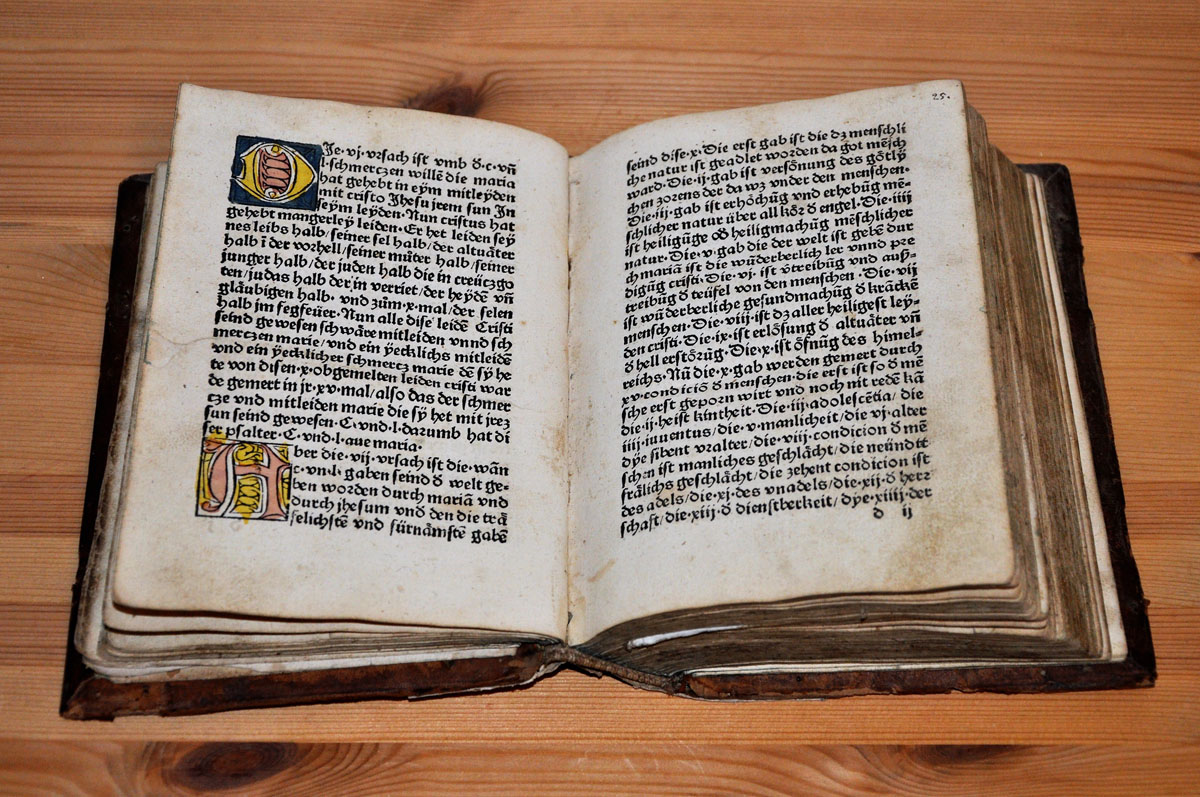 DJe·vj·vrsach ist vmb đ·c·vñ
·l·schmerczen willē die maria
hat gehebt in eym mitleÿden
mit cristo Jhesu jrem sun Jn
seym leÿden·Nun cristus hat
gehebt mangerleÿ leiden·Er het leiden seÿ
nes leibs halb/seiner sel halb/der altuåter
halb ī der vorhell/seiner můter halb/seiner
junger halb/der juden halb die in creüczgo
ten/judas halb der in verriet/der heÿdē vñ
glåubigen halb· vnd zům·x·mal/der selen
halb jm fegfeüer·Nun alle dise leidē Cristi
seind gewesen schwåre mitleiden vnnd sch
merczen marie/vnd ein ÿecklichs mitleidē
vnd ein ÿecklicher schmercz marie dē sÿ he
te von disen·x·obgemelten leiden cristi war
de gemert in jr·xv·mal/also das der schmer
cze vnd mitleiden marie die sÿ het mit jrez
sun seind gewesen·C·vnd·l·darumb hat di
ser psalter·C·vnd·l·aue maria·
Aber die·vij·vrsach ist die·wān
·c·vn·l·gaben seind đ welt ge⸗
ben worden durch mariā vnd
durch jhesum vnđ den die trā
felichstē vnd fürnåmstē gabē
25.
seind dise·x·Die erst gab ist die dz menschli
che natur ist geadlet worden da got mēsch
ward·Die·ij·gab ist versönung des götlÿ
chen zorens der da wz vnder den menschen·
Die·iij·gab ist erhöchūg vnd erhebūg mē⸗
schlicher natur über all kör đ engel·Die·iiij
ist heiligūge ođ heiligmachūg mēschlicher
natur·Die·v·gab die der welt ist gebē dur
ch mariā ist die wūderberlich ler vnnd pre
digūg cristi·Die·vj·ist v̄treibūg vnd auß⸗
treibūg đ teüfel von den menschen·Die·vij
ist wūderberliche gesundmachūg đ kråckē
menschen·Die·viij·ist dz aller heiligest leÿ⸗
den cristi·Die·ix·ist erlösung đ altuåter vñ
đ hell erstözūg·Die·x·ist öfnūg des himel⸗
reichs·Nū die·x·gab werden gemert durch
xv·condiciō đ menschen·die erst ist so đ mē
sche erst geporn wirt vnd noch nit redē kā
die·ij·he ist kintheit·Die·iij·adolescētia/die
iiij·iuuentus/die·v·manlicheit/die vj·alter
dÿe sibent vralter/die·viij·condicion đ mē
schen ist manliches geschlåcht/die neündtt
frålichs geschlåcht/die zehent condicion ist
des adels/die·xj·des vnadels/die·xij·đ herr
schaft/die·xiij·đ dienstberkeit/dÿe·xiiij·der
d ij